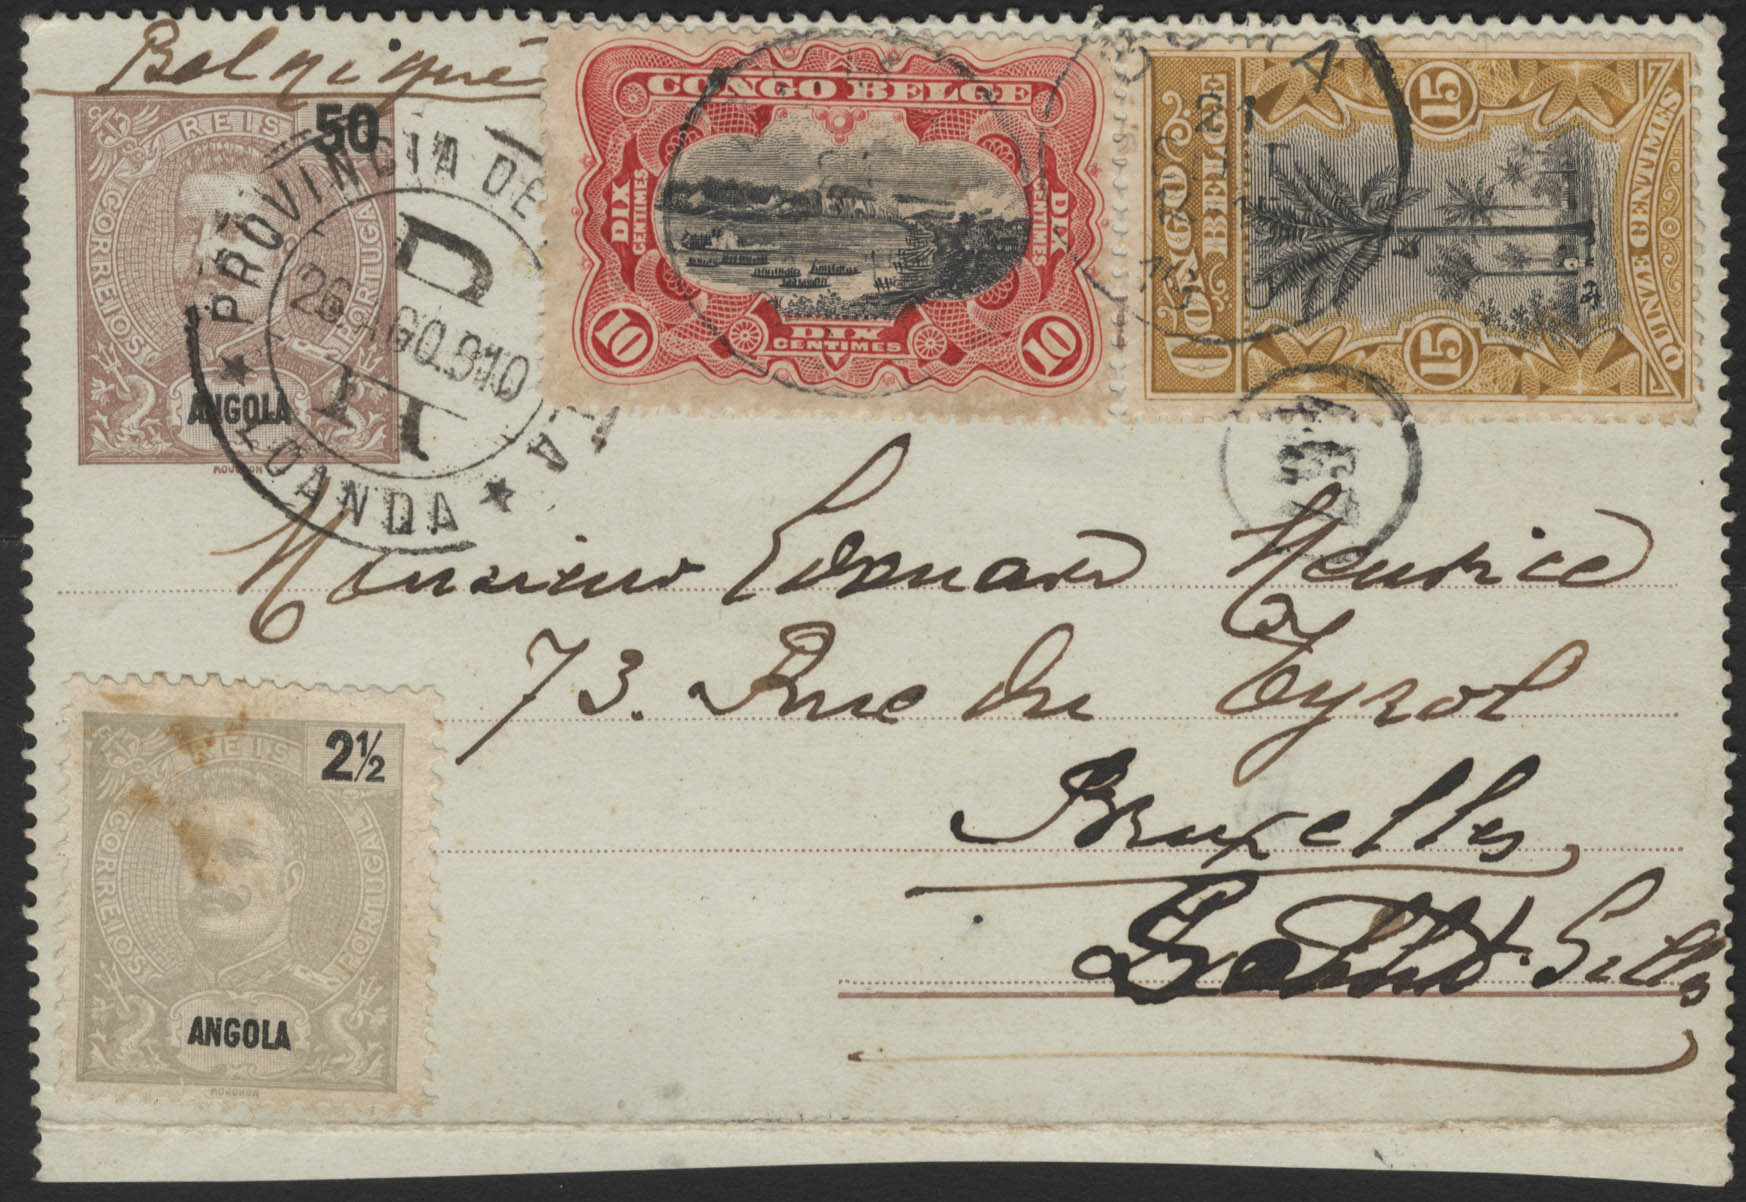 Belgique
50
REIS
CORREIOS
PORTUGAL
ANGOLA
MOUCHON
PROVINCIA DE
LOANDA
26 AGO. 910
CONGO BELGE
DIX CENTIMES
DIX CENTIMES
10
DIX CENTIMES
10
CONGO BELGE
15
15
QUINZE CENTIMES
BOMA
Monsieur Edouard
73. Rue du Tyrol
Bruxelles
2½
REIS
CORREIOS
PORTUGAL
ANGOLA
MOUCHON